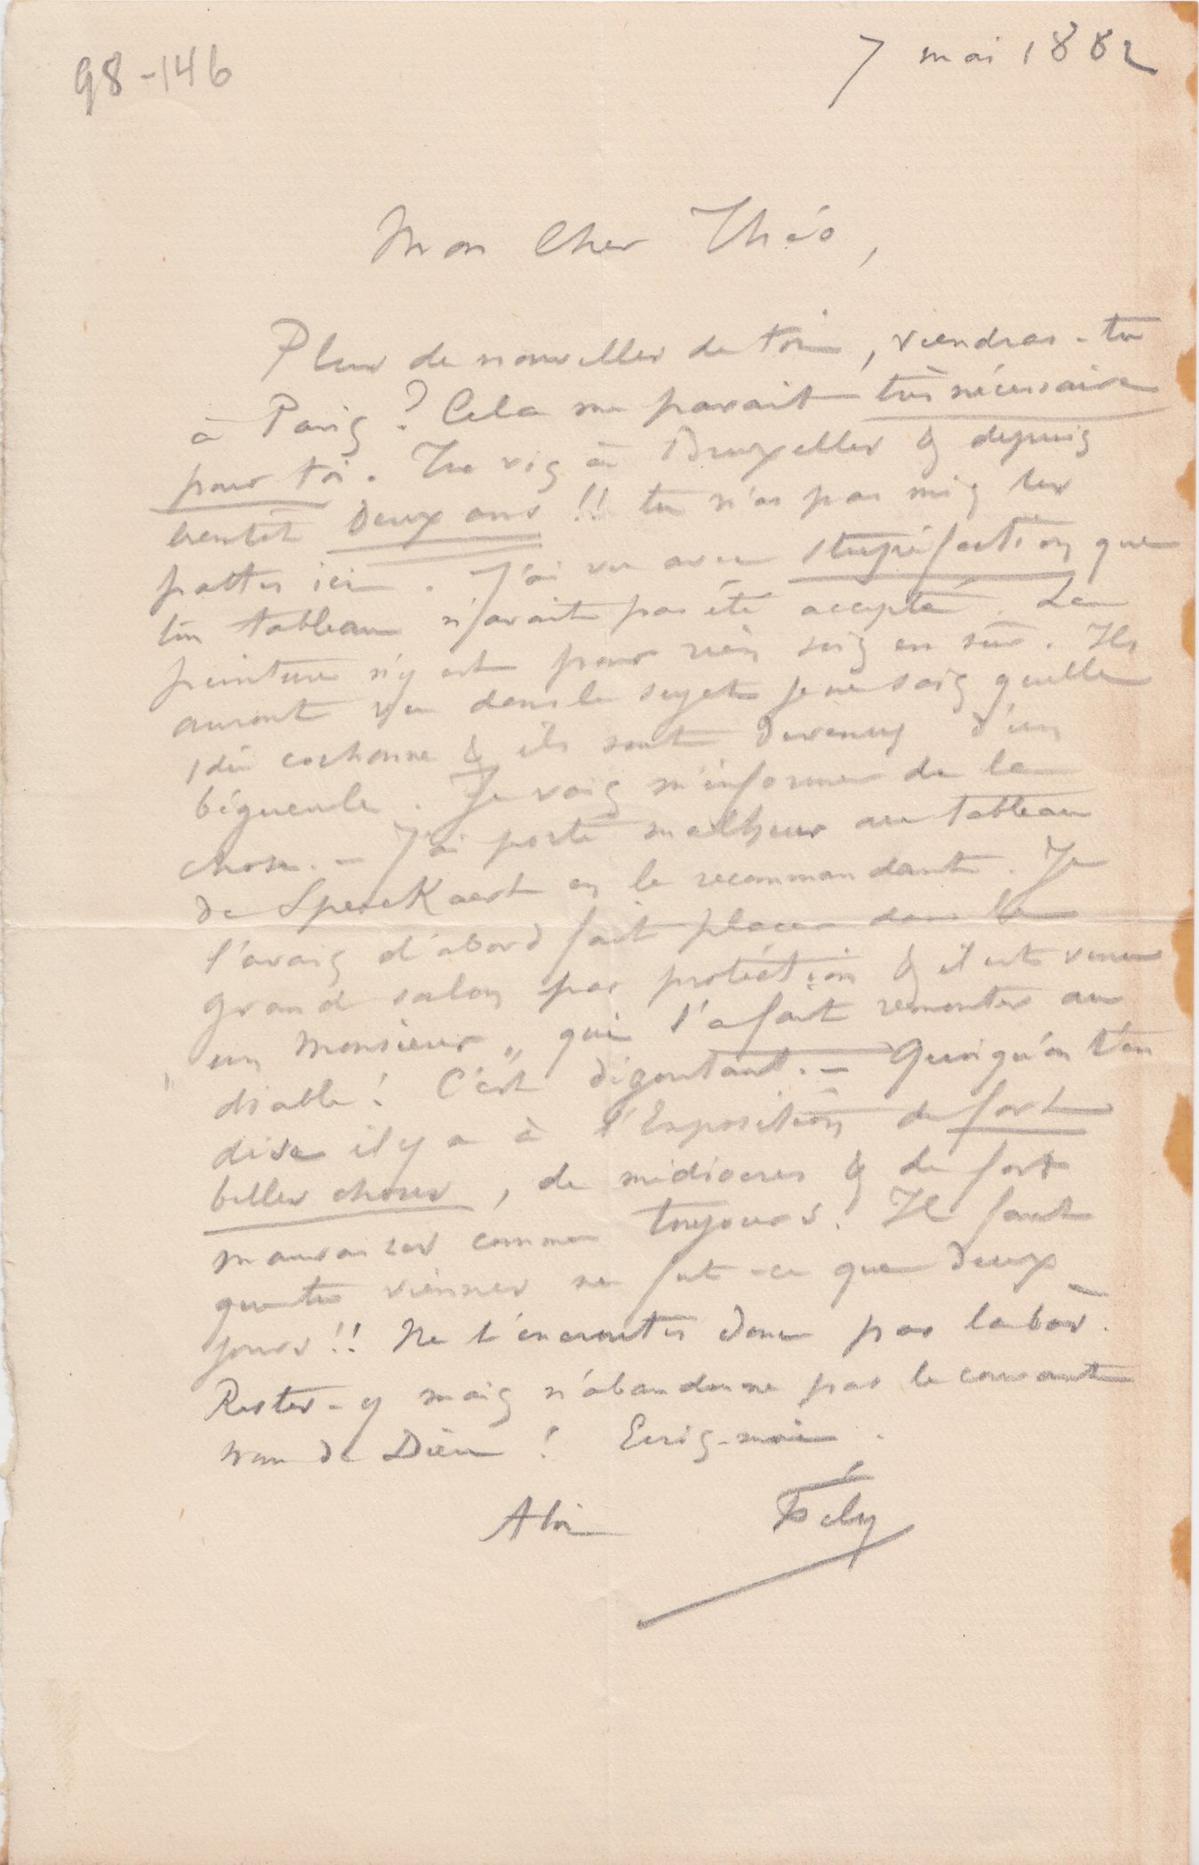 98-146
7 mai 1882
Mon Cher Théo,
Plus de nouvelles de toi, viendras-tu
à Paris ? Cela me parait très nécessaire
pour toi. Tu vis à Bruxelles & depuis
bientôt deux ans !! tu n'as pas mis les
pattes ici. J'ai vu avec stupéfaction que
ton tableau n'avait pas été accepté. La
peinture n'y est pour rien sois en sûr. Ils
auront vu dans le sujet je ne sais quelle
idée cochonne & ils sont devenus d'un
bégueule. Je vais m'informer de la
chose. – J'ai porté malheur au tableau
de Speeckaert en le recommandant. Je
l'avais d'abord fait placer dans le
grand salon par protéction & il est venu
un "Monsieur" qui l'a fait remonter au
diable ! C'est dégoutant. – Quoiqu'on t'en
dise il y a à l'Exposition de fort
belles choses, de médiocres & de fort
mauvaises comme toujours. Il faut
que tu viennes ne fut-ce que deux
jours !! Ne t'encroutes donc pas là bàs.
Restes-y mais n'abandonne pas le courant
nom de Dieu ! Ecris-moi.
A toi Fély